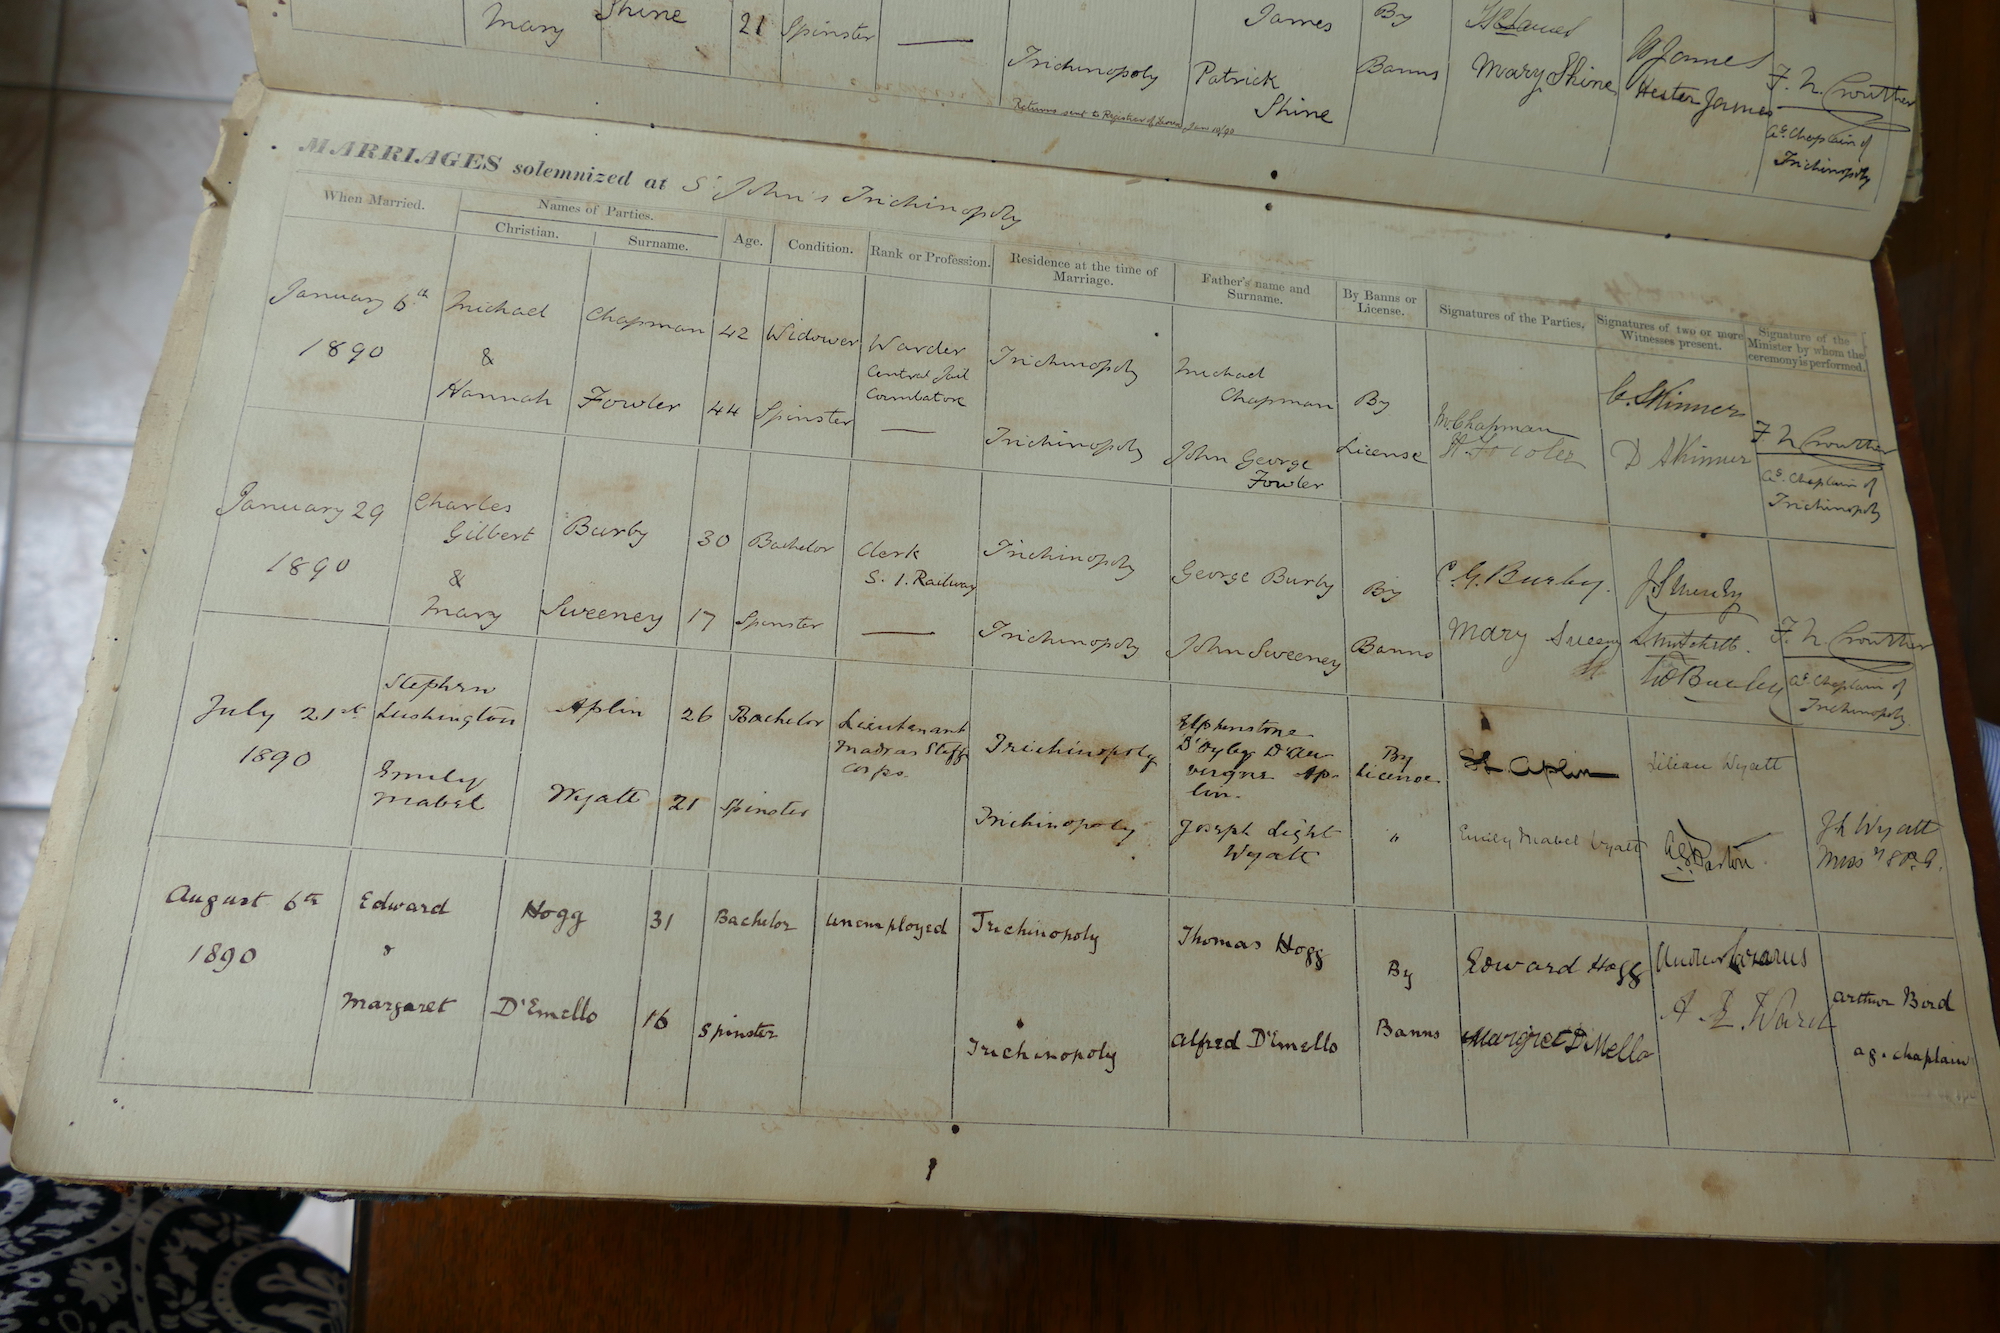 Mary Shine 21 Spinster — Trichinopoly James By
Patrick Shine Banns Mary Shine W James
Hester James F. N. Crowther
Ag. Chaplain of
Trichinopoly
Returns sent to Registrar of
MARRIAGES solemnized at St John's Trichinopoly
When Married. Names of Parties. Christian. Surname. Age. Condition. Rank or Profession. Residence at the time of Marriage. Father's name and Surname. By Banns or License. Signatures of the Parties. Signatures of two or more Witnesses present. Signature of the Minister by whom the ceremony is performed.
January 6th Michael Chapman 42 Widower Warder Trichinopoly Michael
1890 & Central Jail Chapman By M. Chapman C. Skinner
Coimbatore
Hannah Fowler 44 Spinster — Trichinopoly John George License D Skinner F. N. Crowther
Fowler Ag. Chaplain of
Trichinopoly
January 29 Charles
Gilbert Burby 30 Bachelor Clerk Trichinopoly George Burby By C. G. Burby.
1890 & S. I. Railway
Mary Sweeney 17 Spinster — Trichinopoly John Sweeney Banns Mary F. N. Crowther
Ag. Chaplain of
Trichinopoly
July 21st Stephen
Lushington Aplin 26 Bachelor Lieutenant Trichinopoly Elphinstone By Aplin Lilian Wyatt
1890 Madras Staff D'Oyley D'Au- License
Corps. vergne Ap-
lin.
Emily
Mabel Wyatt 21 Spinster Trichinopoly Joseph Light " Emily Mabel Wyatt J L Wyatt
Wyatt
August 6th Edward Hogg 31 Bachelor unemployed Trichinopoly Thomas Hogg By Edward Hogg Andrew Lazarus
1890 & Arthur Bird
Margaret D'Emello 16 Spinster Trichinopoly Alfred D'Emello Banns Margret D'Mello
ag. chaplain